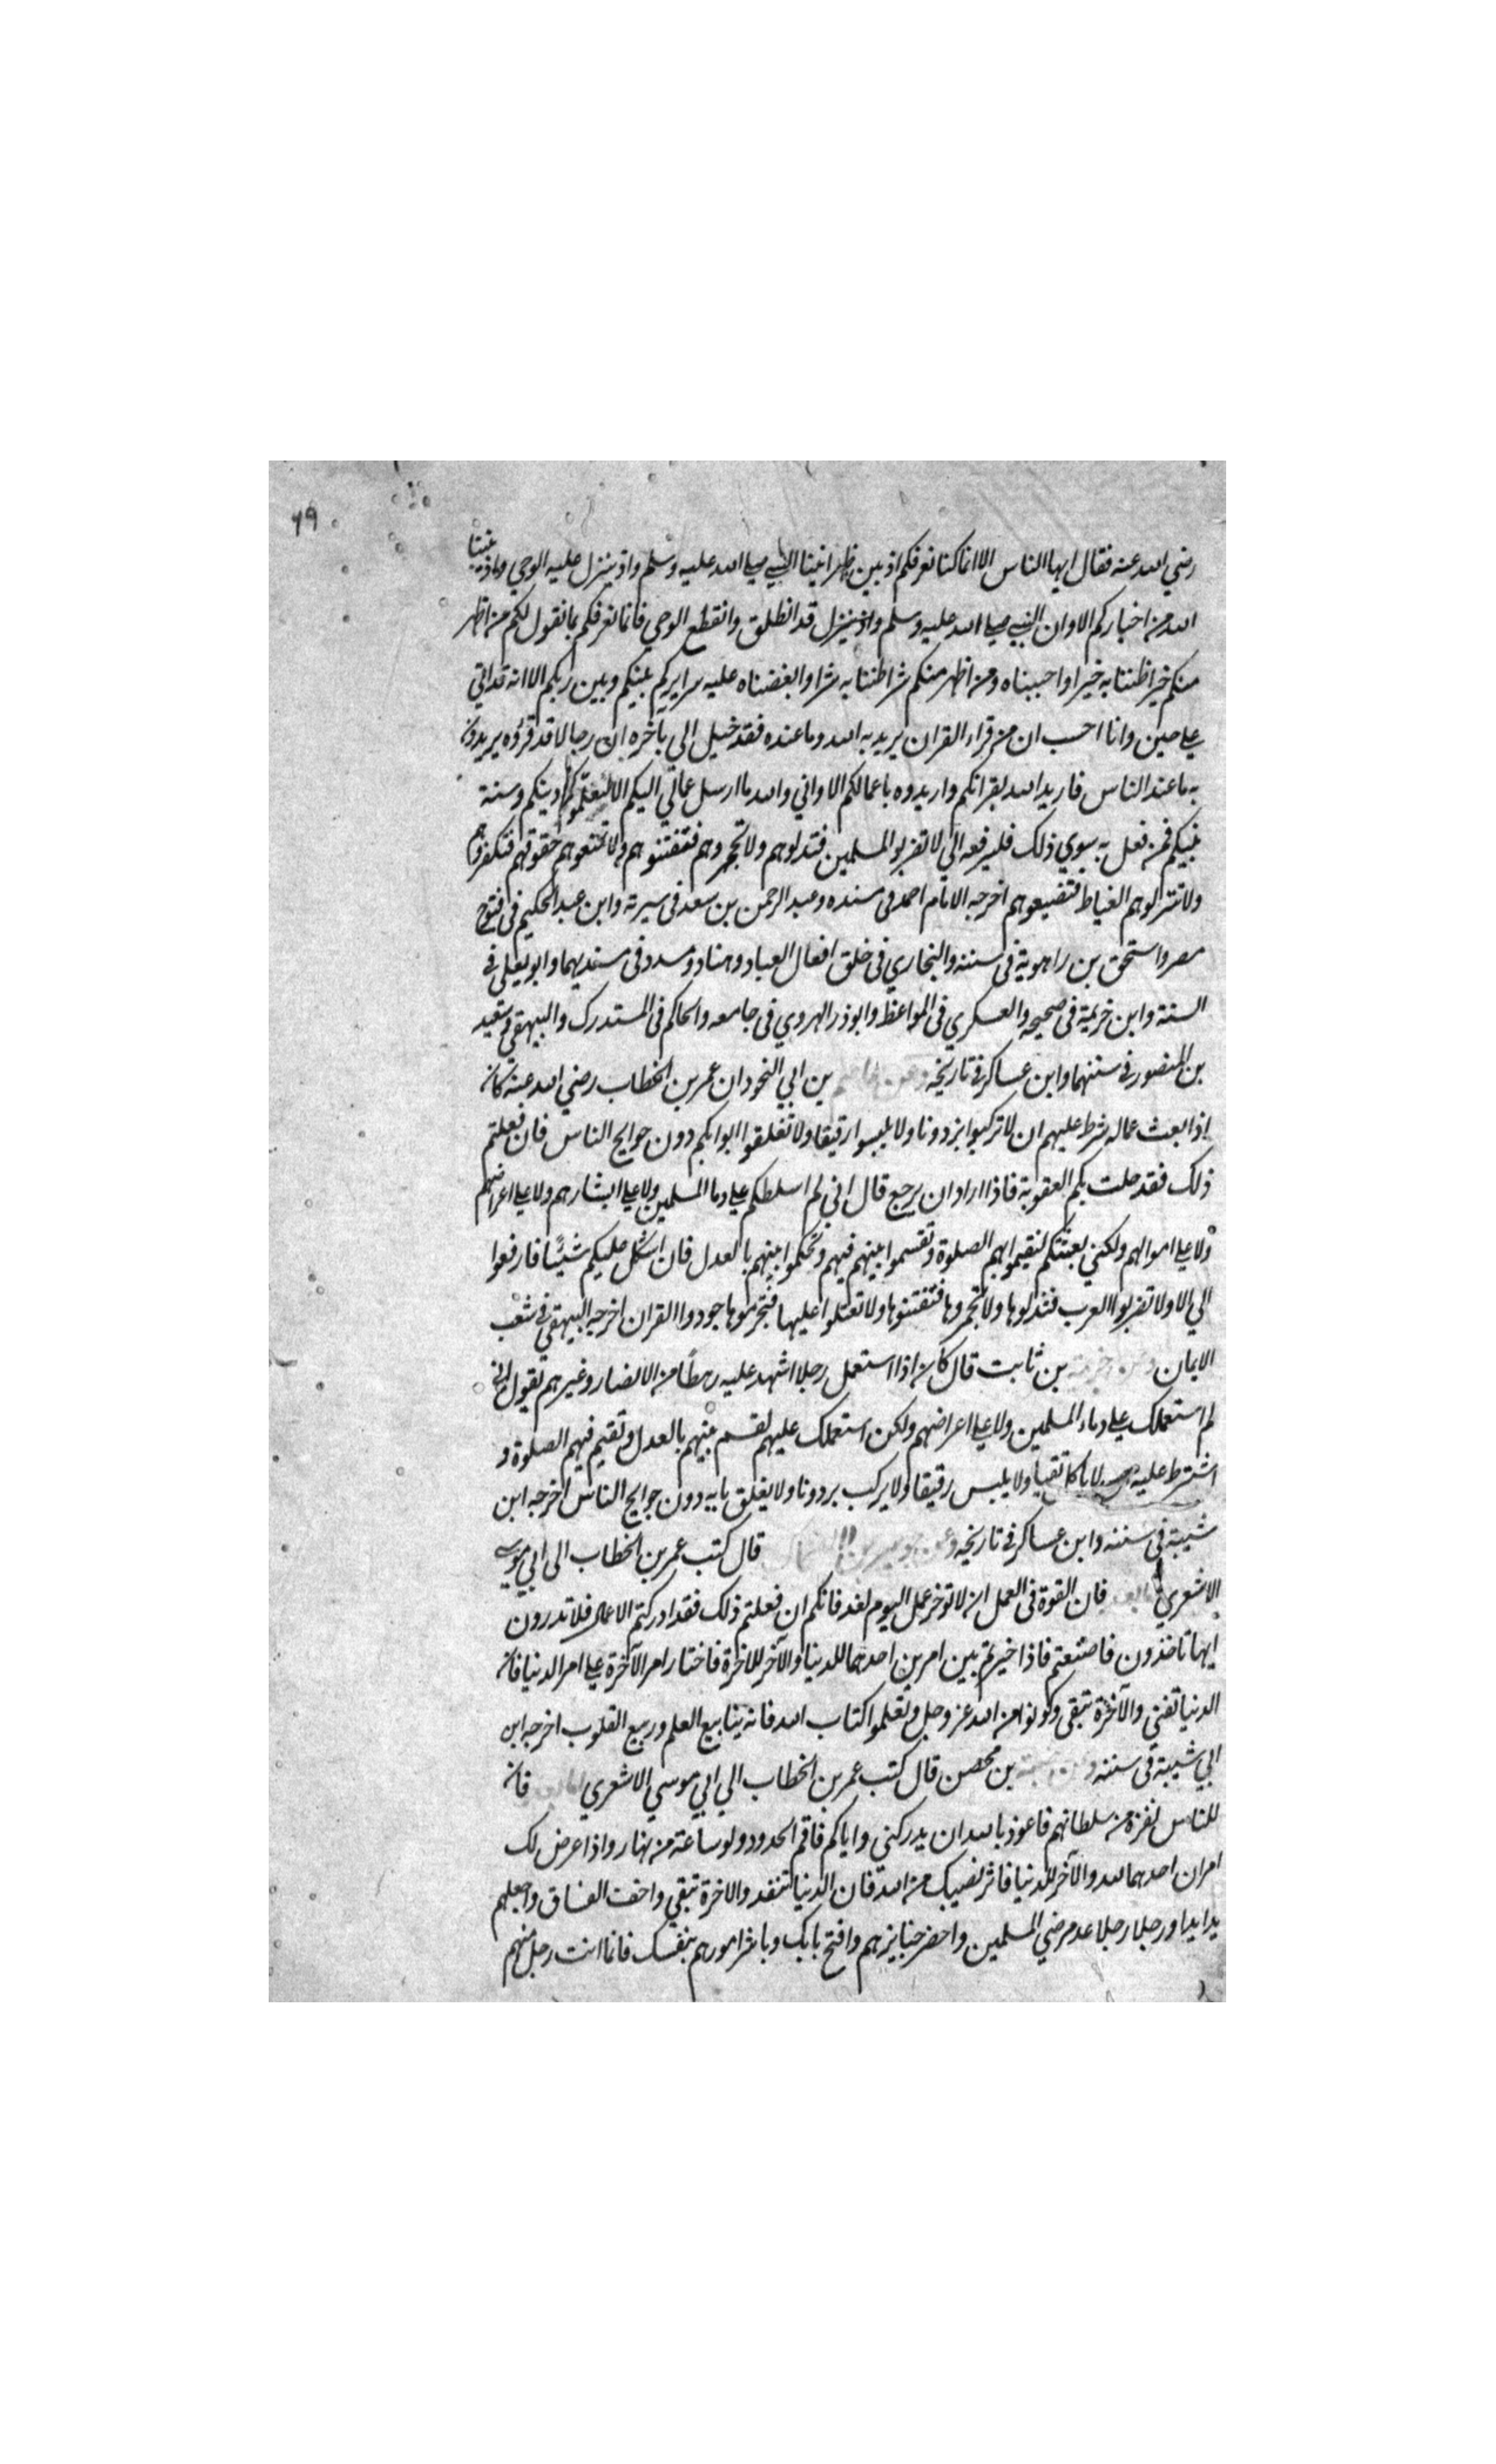 ٦٩
رضي الله عنه فقال ايها الناس الا انما كنا نعرفكم اذ بين ظهرانينا النبي صلي الله عليه وسلم واذ ينزل عليه الوحي واذ ينبئنا
الله من اخباركم الا وان النبي صلي الله عليه وسلم واذ ينزل قد انطلق وانقطع الوحي فانما نعرفكم بما نقول لكم من اظهر
منكم خيرا ظننا به خيرا واحببناه ومن اظهر منكم شرا ظننا به شرا وابغضناه عليه سرايركم بينكم وبين ربكم الا انه قد اتي
علي حين وانا احسب ان من قراء القران يريد به الله وما عنده فقد خيل الي بآخره ان رجالا قد قرؤه يريدون
به ما عند الناس فاريد الله بقرانكم واريدوه باعمالكم الا واني والله ما ارسل عمالي اليكم الا ليعلموكم دينكم وسنة
نبيكم فمن فعل به سوي ذلك فليرفعه الي لا تضربوا المسلمين فتذلوهم ولا تجمروهم فتفتنوهم ولا تمنعوهم حقوقهم فتكفروهم
ولا تنزلوهم الغياط فتضيعوهم اخرجه الامام احمد في مسنده وعبد الرحمن بن سعد في سيرته وابن عبد الحكيم في فتوح
مصر واسحق بن راهوية في سننه والبخاري في خلق افعال العباد وهناد ومسدد في مسنديهما وابو يعلي في
السنة وابن خزيمة في صحيحه والعسكري في المواعظ وابو ذر الهروي في جامعه والحاكم في المستدرك والبيهقي وسعيد
بن المنصور في سننهما وابن عساكر في تاريخه وعن عاصم بن ابي النجود ان عمر بن الخطاب رضي الله عنه كان
اذا بعث عماله شرط عليهم ان لا تركبوا بزدونا ولا يلبسوا رقيقا ولا تغلقوا ابوابكم دون حوايج الناس فان فعلتم
ذلك فقد حلت بكم العقوبة فاذا اراد ان يرجع قال اني لم اسلطكم علي دما المسلمين ولا علي ابشارهم ولا علي اعراضهم
ولا علي اموالهم ولكني بعثتكم لتقيموا بهم الصلوة وتقسموا بينهم فيهم وتحكموا بينهم بالعدل فان اشكل عليكم شيئا فارفعوا
الي الا ولا تضربوا العرب فتذلوها ولا تجمروها فتفتنوها ولا تعتلوا عليها فتحرموها جودوا القران اخرجه البيهقي في شعب
الايمان وعن خزيمة بن ثابت قال كان اذا استعمل رجلا اشهد عليه رهطا من الانصار وغيرهم تقول اني
لم استعملك علي دماء المسلمين ولا علي اعراضهم ولكن استعملك عليهم لقسم بينهم بالعدل وتقيم فيهم الصلوة و
اشترط عليه لا ياكل نقيا ولا يلبس رقيقا ولا يركب بردونا ولا يغلق بابه دون حوايج الناس اخرجه ابن
شيبة في سننه وابن عساكر في تاريخه وعن قال كتب عمر بن الخطاب الي ابي موسي
الاشعري اما بعد فان القوة في العمل ان لا توخر عمل اليوم لغد فانكم ان فعلتم ذلك فقد ادركتم الاعمال فلا تدرون
ايها تاخذون فاضتعتم فاذا خيرتم بين امرين احدهما للدنيا والآخر للاخرة فاختار امر الآخرة علي امر الدنيا فان
الدنيا تفني والآخرة تبقي وكونوا من الله عز وجل وتعلموا كتاب الله فانه ينابيع العلم وربيع القلوب اخرجه ابن
ابي شيبة في سننه وعن بن محصن قال كتب عمر بن الخطاب الي ابي موسي الاشعري اما بعد فان
للناس نفرة من سلطانهم فاعوذ بالله ان يدركني واياكم فاقم الحدود ولو ساعة من نهار واذا عرض لك
امران احدهما لله والآخر للدنيا فاثر نصيبك من الله فان الدنيا لتنفد والاخرة تبقي واخف الفساق واجعلهم
يدا يدا ورجلا رجلا عد مرضي المسلمين واحضر جنايزهم وافتح بابك وباشر امورهم بنفسك فانما انت رجل منهم